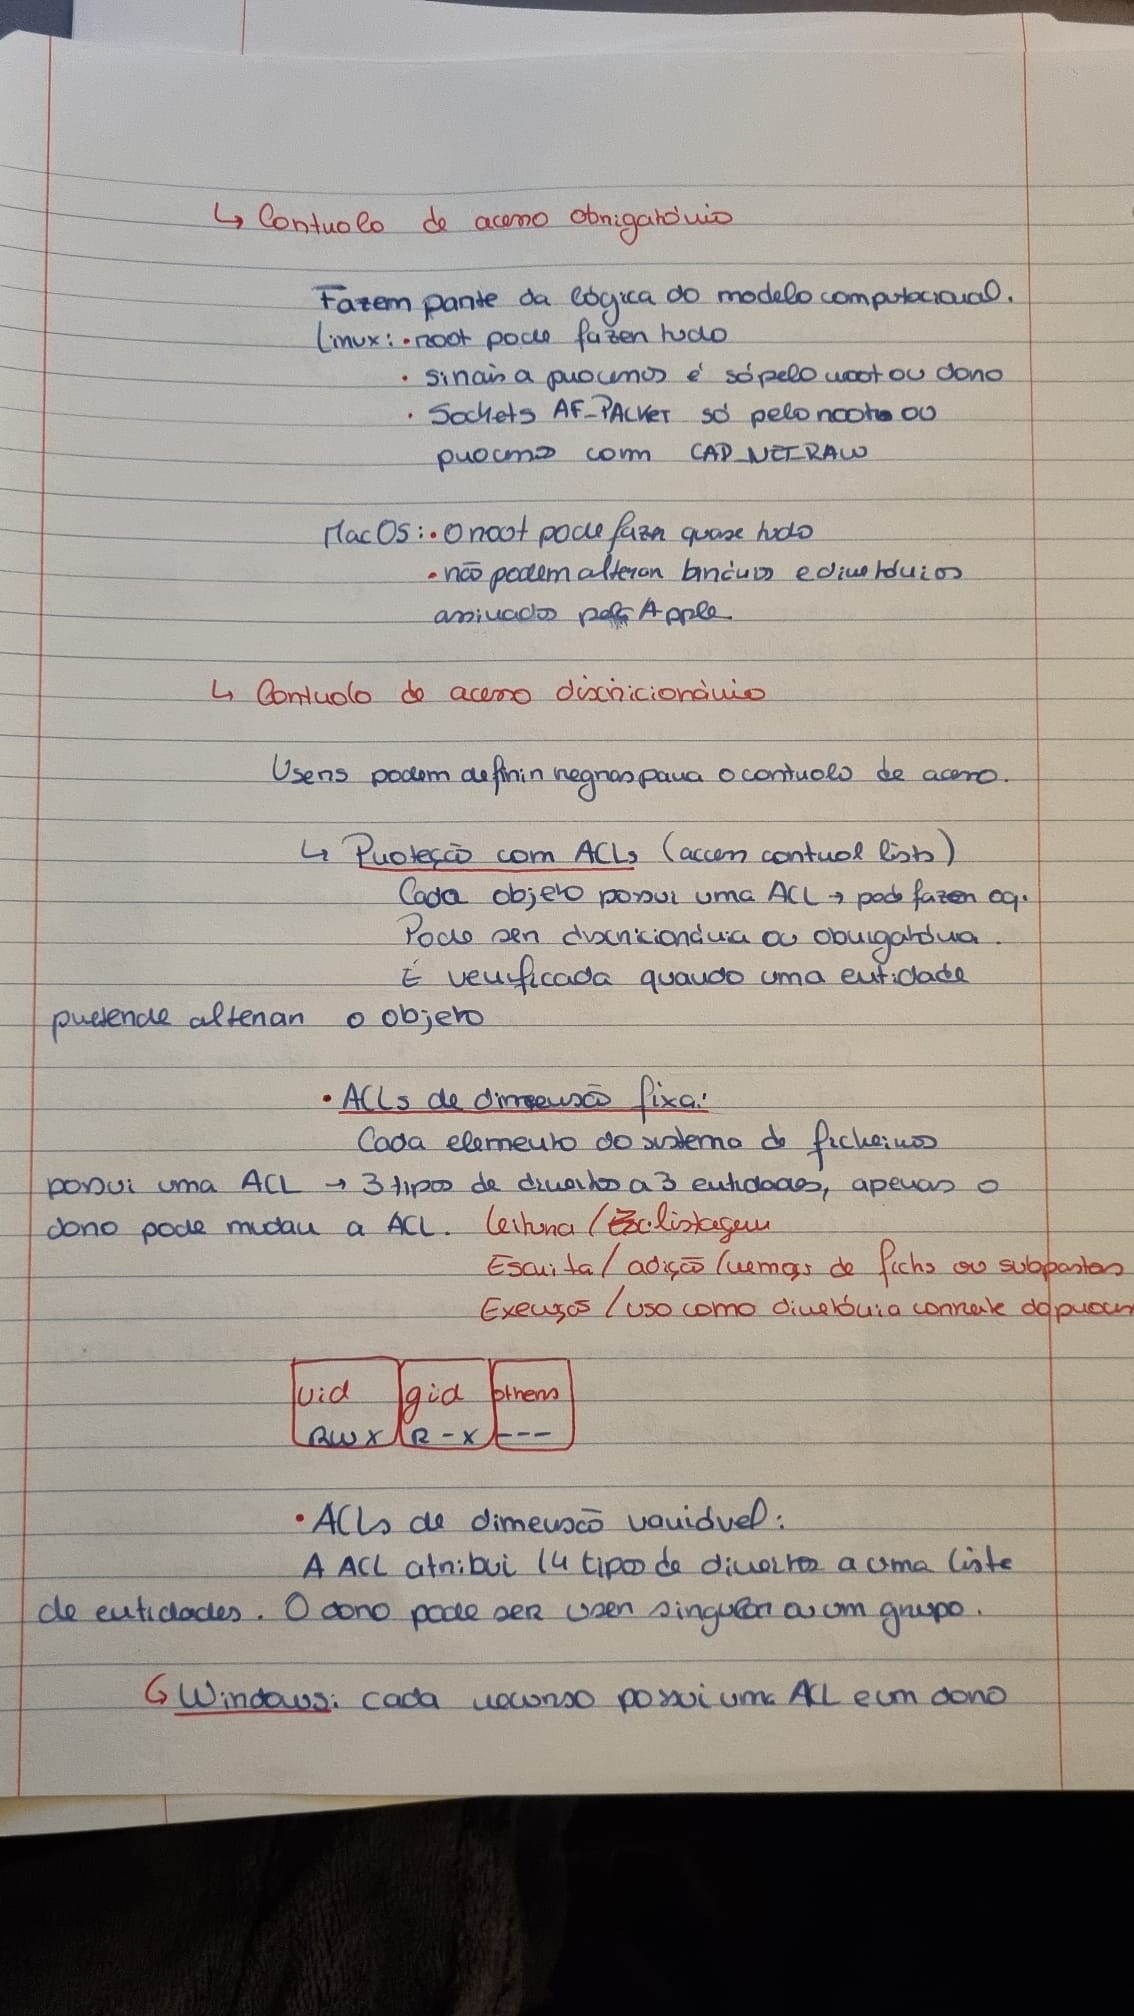 ↳ Controlo de acesso obrigatório
Fazem parte da lógica do modelo computacional.
Linux: • root pode fazer tudo
• sinais a processos é só pelo root ou dono
• Sockets AF_PACKET só pelo root ou
processo com CAP_NET_RAW
MacOS: • O root pode fazer quase tudo
• não podem alterar binários e diretórios
assinados pela Apple
↳ Controlo de acesso discricionário
Users podem definir regras para o controlo de acesso.
↳ Proteção com ACLs (access control lists)
Cada objeto possui uma ACL → pode fazer oq.
Pode ser discricionária ou obrigatória.
É verificada quando uma entidade
pretende alterar o objeto
• ACLs de dimensão fixa:
Cada elemento do sistema de ficheiros
possui uma ACL → 3 tipos de direitos a 3 entidades, apenas o
dono pode mudar a ACL. Leitura / listagem
Escrita / adição / remoç de fichs ou subpastas
Execução / uso como diretória corrente do process
uid gid others
RWX R-X ---
• ACLs de dimensão variável:
A ACL atribui 14 tipos de direitos a uma lista
de entidades. O dono pode ser user singular ou um grupo.
↳ Windows: cada recurso possui uma ACL e um dono